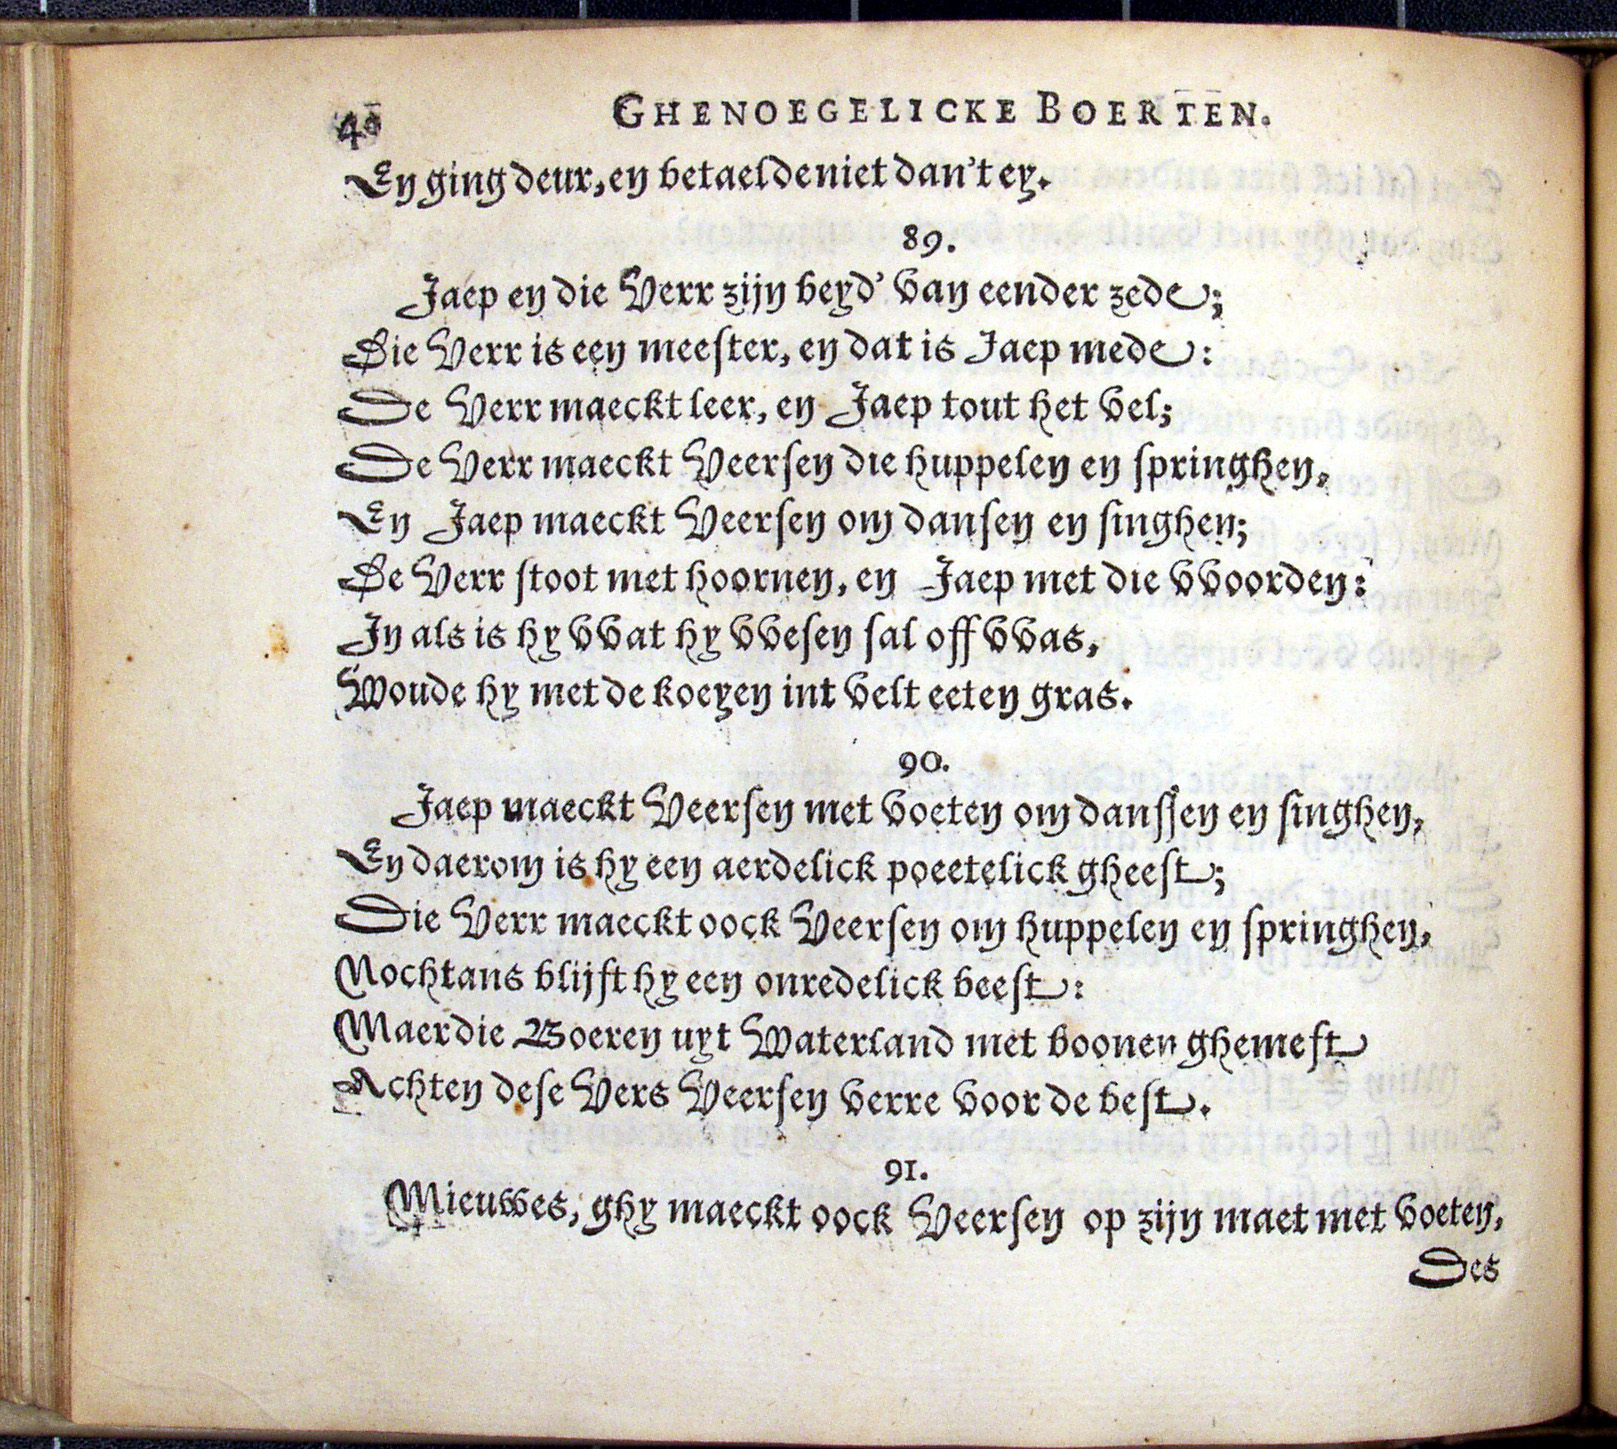 40 GHENOEGELICKE BOERTEN.
En ging deur, en betaelde niet dan't ey.
89.
Jaep en die Verr zijn beyd' van eender zede;
Die Verr is een meester, en dat is Jaep mede:
De Verr maeckt leer, en Jaep tout het vel;
De Verr maeckt Veersen die huppelen en springhen,
En Jaep maeckt Veersen om dansen en singhen;
De Verr stoot met hoornen, en Jaep met die vvoorden:
In als is hy vvat hy vvesen sal off vvas,
Woude hy met de koeyen int velt eeten gras.
90.
Jaep maeckt Veersen met voeten om danssen en singhen,
En daerom is hy een aerdelick poeetelick gheest;
Die Verr maeckt oock Veersen om huppelen en springhen,
Nochtans blijft hy een onredelick beest:
Maer die Boeren uyt Waterland met boonen ghemest
Achten dese Vers Veersen verre voor de best.
91.
Mieuwes, ghy maeckt oock Veersen op zijn maet met voeten,
Des